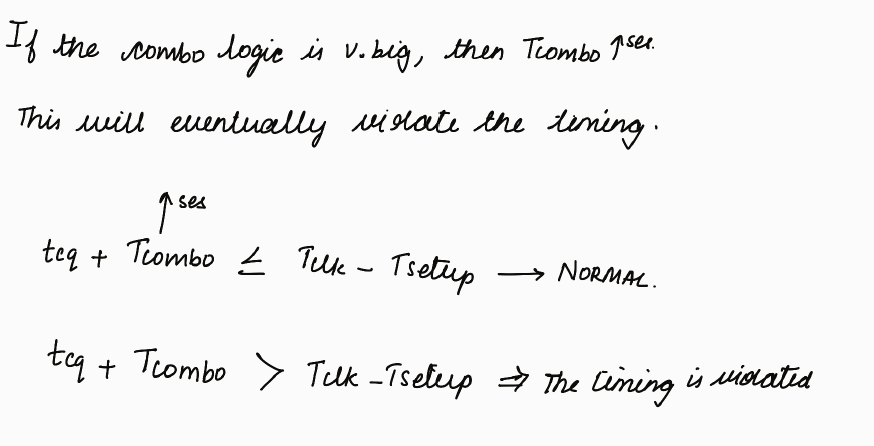 If the combo logic is v.big, then Tcombo ↑ses.
This will eventually violate the timing.
↑ses
tcq + Tcombo ≤ Tclk – Tsetup ⟶ NORMAL.
tcq + Tcombo > Tclk – Tsetup ⇒ The timing is violated